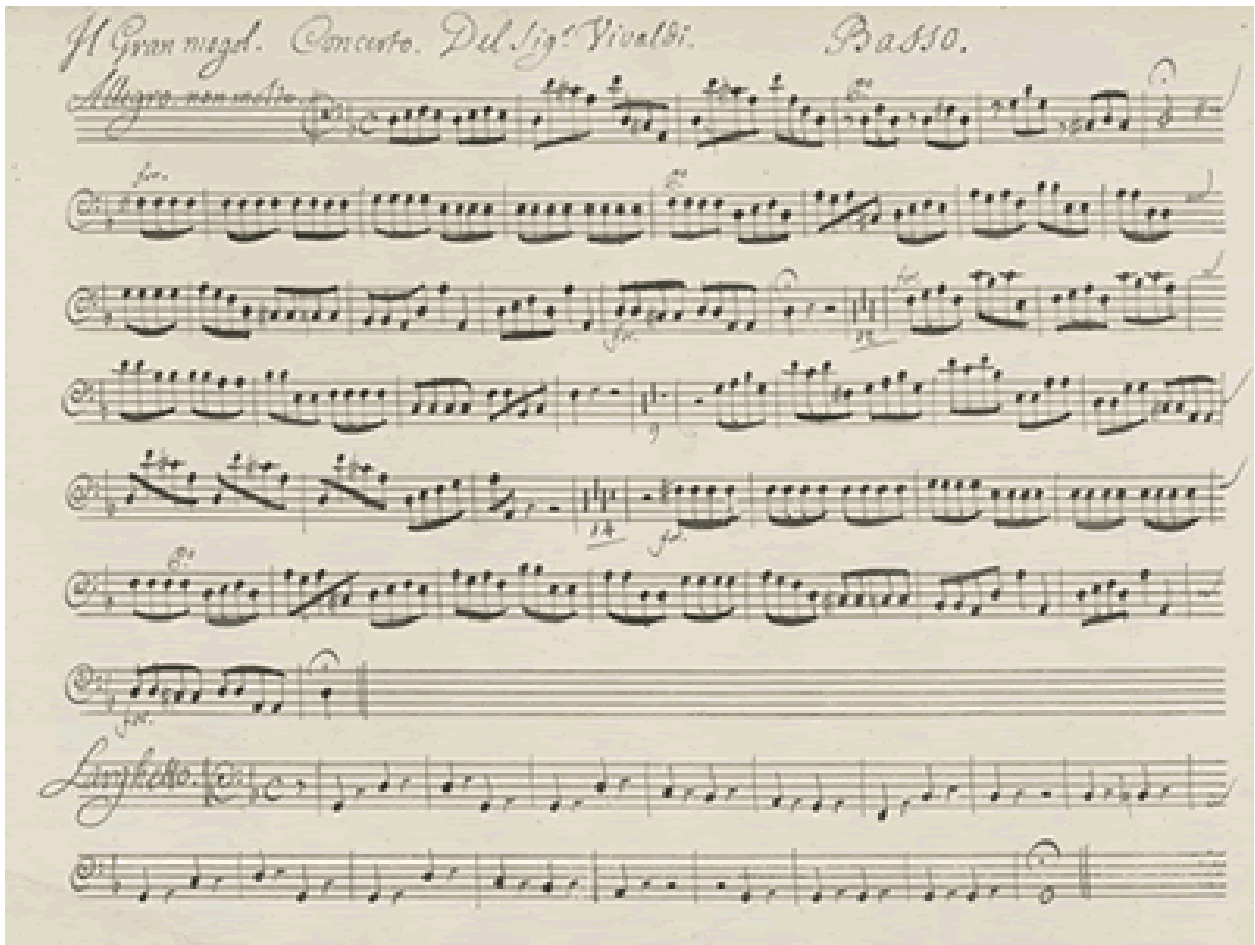 Il Gran mogol. Concerto. Del Sigr. Vivaldi. Basso.
Allegro non molto.
po
for.
po
for.
12
for.
9
14
for.
po
for.
Larghetto.